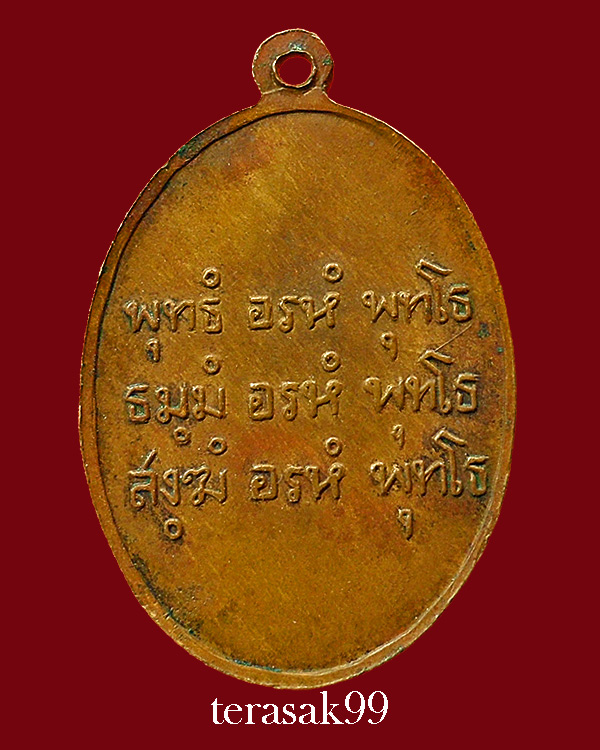 พุทธํ อรหํ พุทโธ
ธมฺมํ อรหํ พุทโธ
สงฺฆํ อรหํ พุทโธ
terasak99